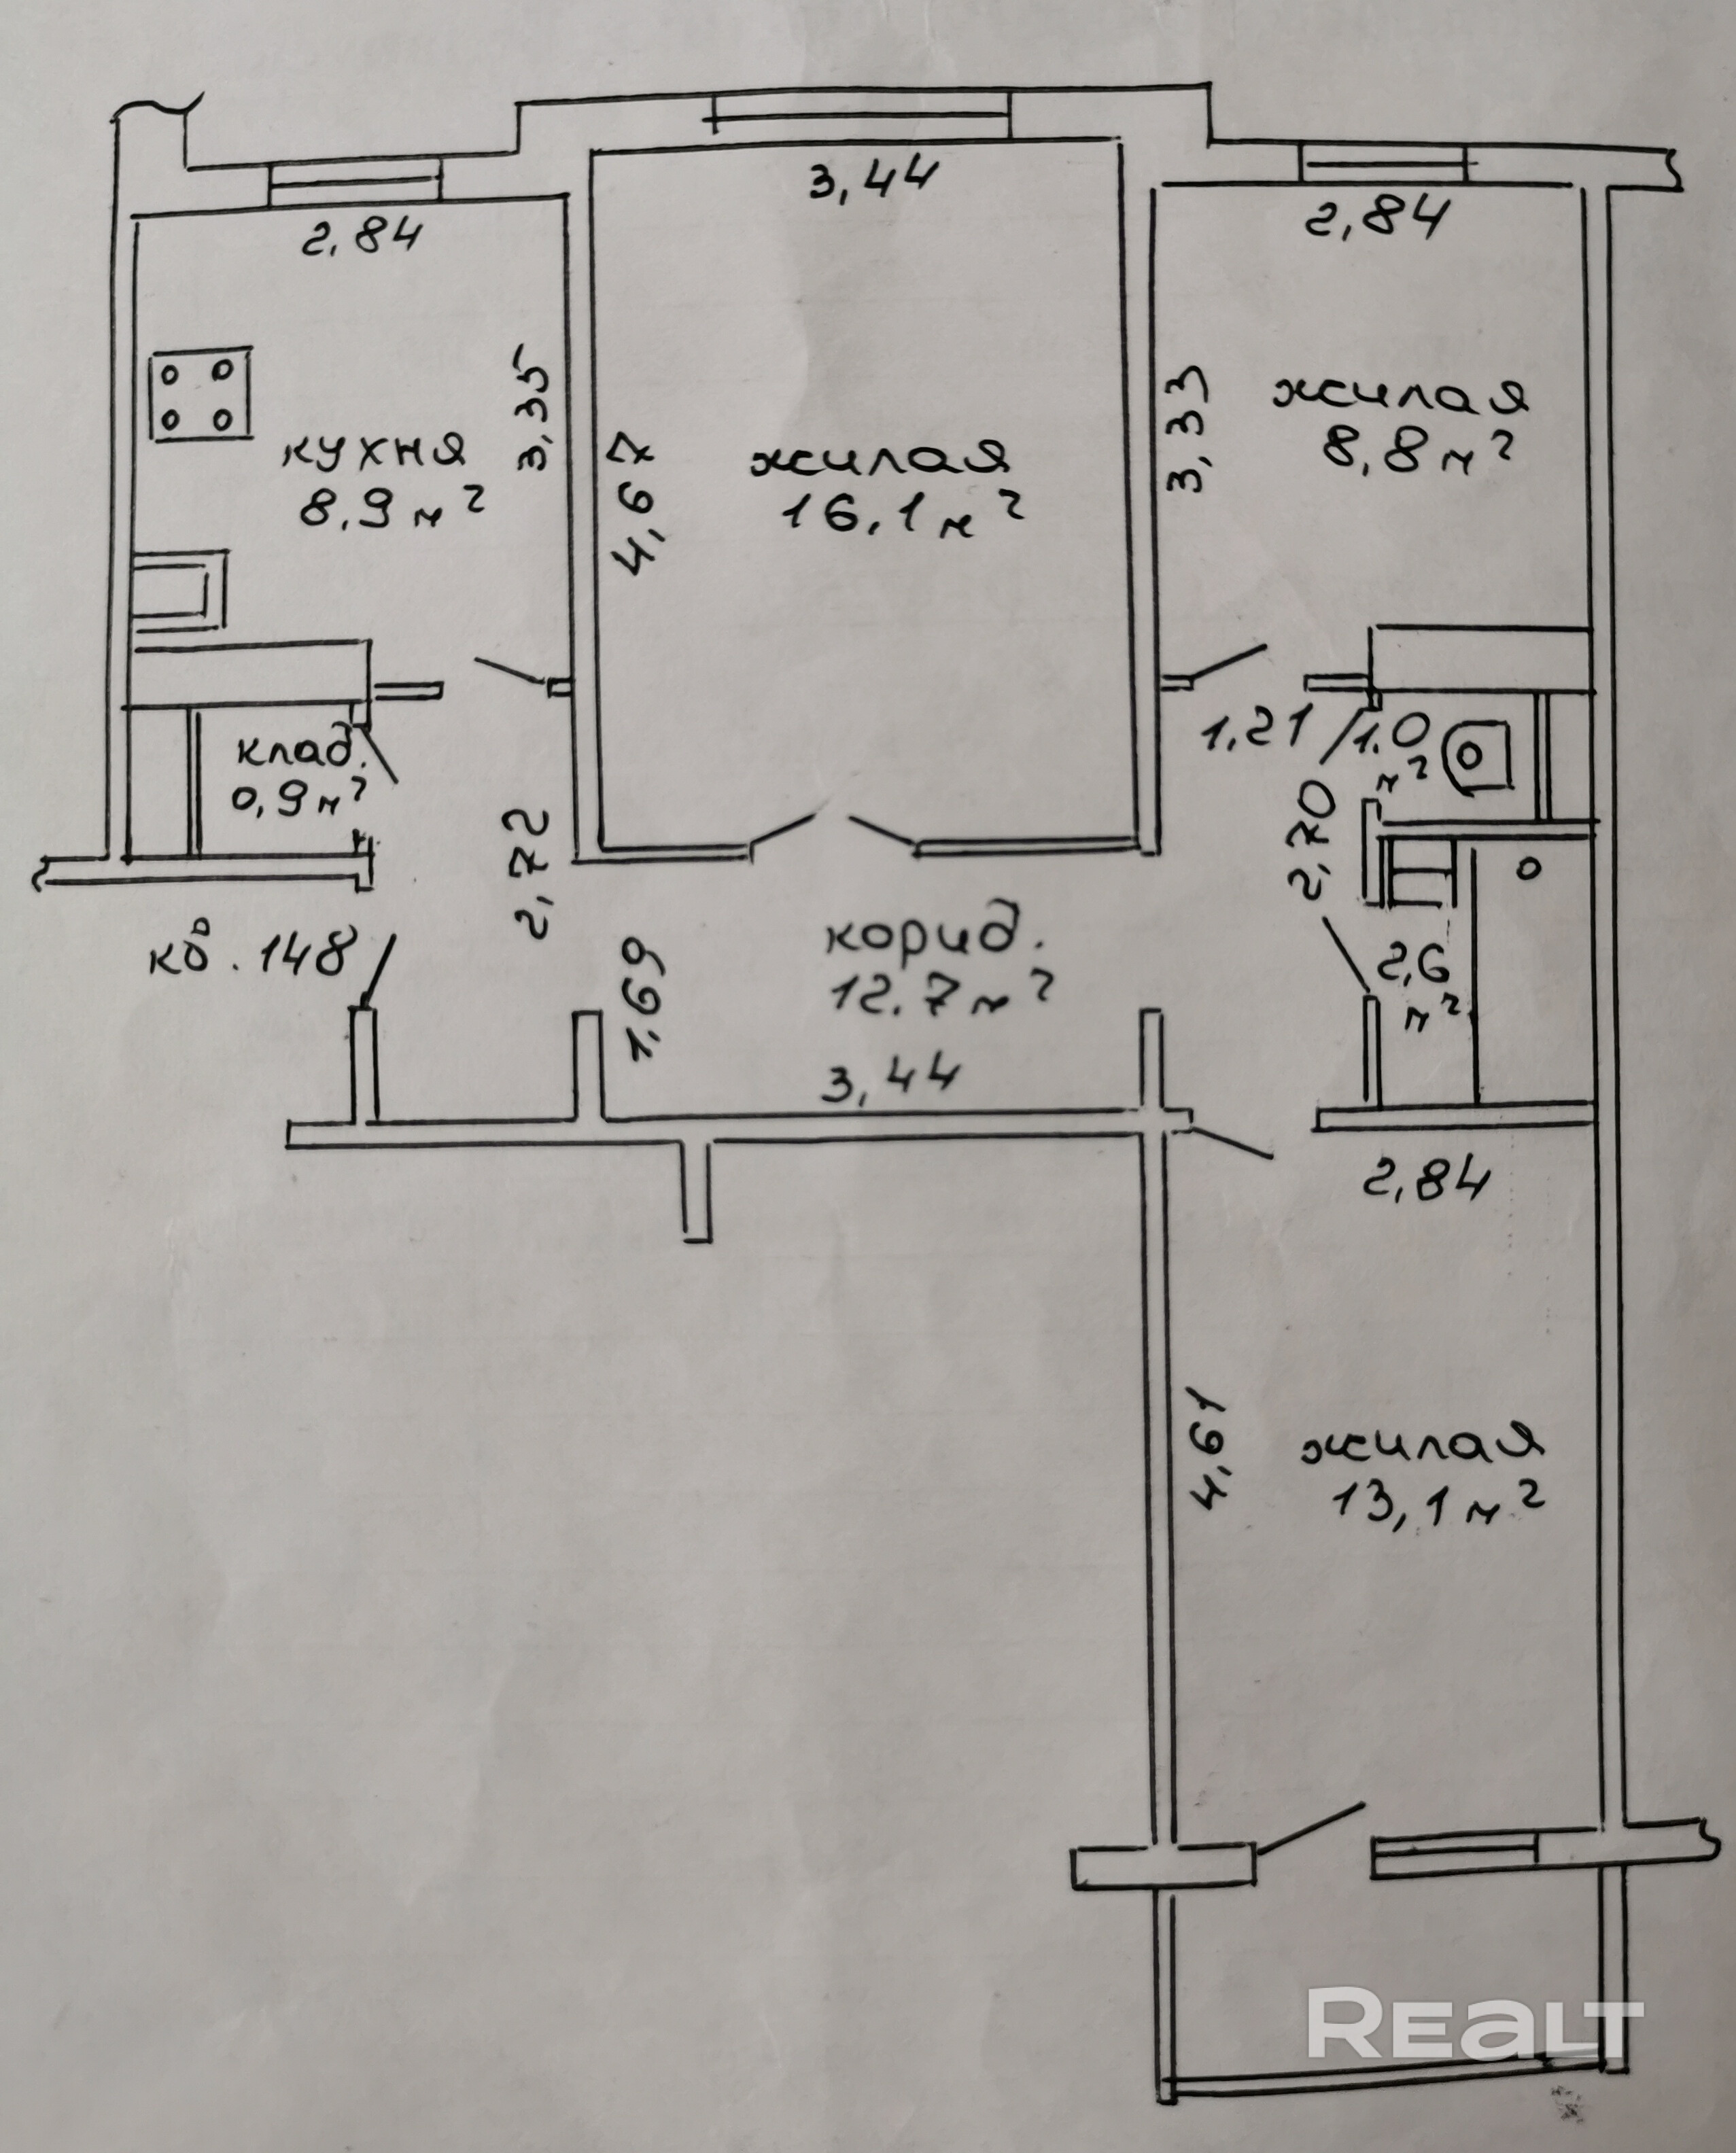 3,44
2,84
2,84
3,35
3,33
жилая
8,8 м²
кухня
8,9 м²
4,67
жилая
16,1 м²
1,21
1.0
м²
клад.
0,9 м²
2,70
2,72
кв. 148
1,69
корид.
12.7 м²
2,6
м²
3,44
2,84
4,61
жилая
13,1 м²
REALT